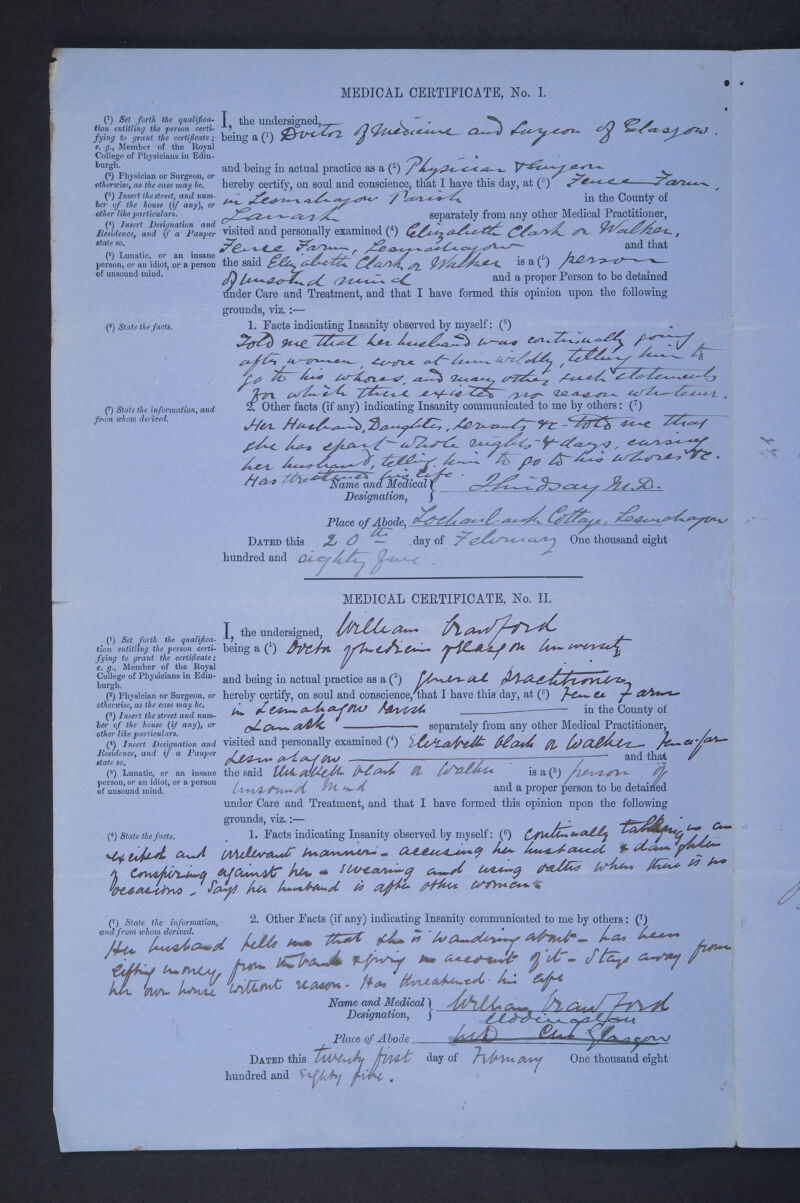 MEDICAL CERTIFICATE, No. I.
(1) Set forth the qualifica-
tion entitling the person certi-
fying to grant the certificate;
e. g., Member of the Royal
College of Physicians in Edin-
burgh.
(2) Physician or Surgeon, or
otherwise, as the case may be.
(3) Insert the street, and num-
ber of the house (if any), or
other like particulars.
(4) Insert Designation and
Residence, and if a Pauper
state so.
(5) Lunatic, or an insane
person, or an idiot, or a person
of unsound mind.
I, the undersigned,
being a (1) Doctor of Medicine and Surgeon of Glasgow.
and being in actual practice as a (2) Physician & Surgeon
hereby certify, on soul and conscience, that I have this day, at (3) Fence Farm,
in Lesmahagow Parish in the County of
Lanark separately from any other Medical Practitioner,
visited and personally examined (4) Elizabeth Clark or Walker,
Fence Farm, Lesmahagow and that
the said Elizabeth Clark or Walker is a (5) person
of unsound mind and a proper Person to be detained
under Care and Treatment, and that I have formed this opinion upon the following
grounds, viz. :—
(6) State the facts.
1. Facts indicating Insanity observed by myself: (6)
Told me that her husband was continually going
after women, swore at him wildly, telling him to
go to his whores, and many other such statements
for which there existed no reason whatever.
(7) State the information, and
from whom derived.
2. Other facts (if any) indicating Insanity communicated to me by others: (7)
Her Husband, Daughter, Servants &c told me that
she has spent whole nights & days, cursing
her husband, telling him to go to his whores &c.
Has threatened his life.
Name and Medical
Designation, } Lindsay M.D.
Place of Abode, Lochanbank Cottage, Lesmahagow
DATED this 20th day of February One thousand eight
hundred and eighty five.
MEDICAL CERTIFICATE, No. II.
(1) Set forth the qualifica-
tion entitling the person certi-
fying to grant the certificate;
e. g., Member of the Royal
College of Physicians in Edin-
burgh.
(2) Physician or Surgeon, or
otherwise, as the case may be.
(3) Insert the street and num-
ber of the house (if any), or
other like particulars.
(4) Insert Designation and
Residence, and if a Pauper
state so.
(5) Lunatic, or an insane
person, or an idiot, or a person
of unsound mind.
I, the undersigned, William Crawford
being a (1) Doctor of medicine of Glasgow University
and being in actual practice as a (2) general practitioner
hereby certify, on soul and conscience, that I have this day, at (3) Fence Farm
in Lesmahagow Parish in the County of
Lanark separately from any other Medical Practitioner,
visited and personally examined (4) Elizabeth Clark or Walker Fence farm
Lesmahagow and that
the said Elizabeth Clark or Walker is a (5) person of
unsound mind and a proper person to be detained
under Care and Treatment, and that I have formed this opinion upon the following
grounds, viz. :—
(6) State the facts.
1. Facts indicating Insanity observed by myself: (6) Continually talking in an
excited and irrelevant manner - accusing her husband & daughter
of conspiring against her - swearing and using oaths when there is no
occasions. Says her husband is after other women
(7) State the information,
and from whom derived.
2. Other Facts (if any) indicating Insanity communicated to me by others: (7)
Her husband tells me that she is wandering about - has been
lifting money from the bank & giving no account of it - Stays away from
her own house without reason - Has threatened his life
Name and Medical
Designation, } William Crawford
Uddingston
Place of Abode Glasgow
DATED this twenty first day of February One thousand eight
hundred and Eighty five.